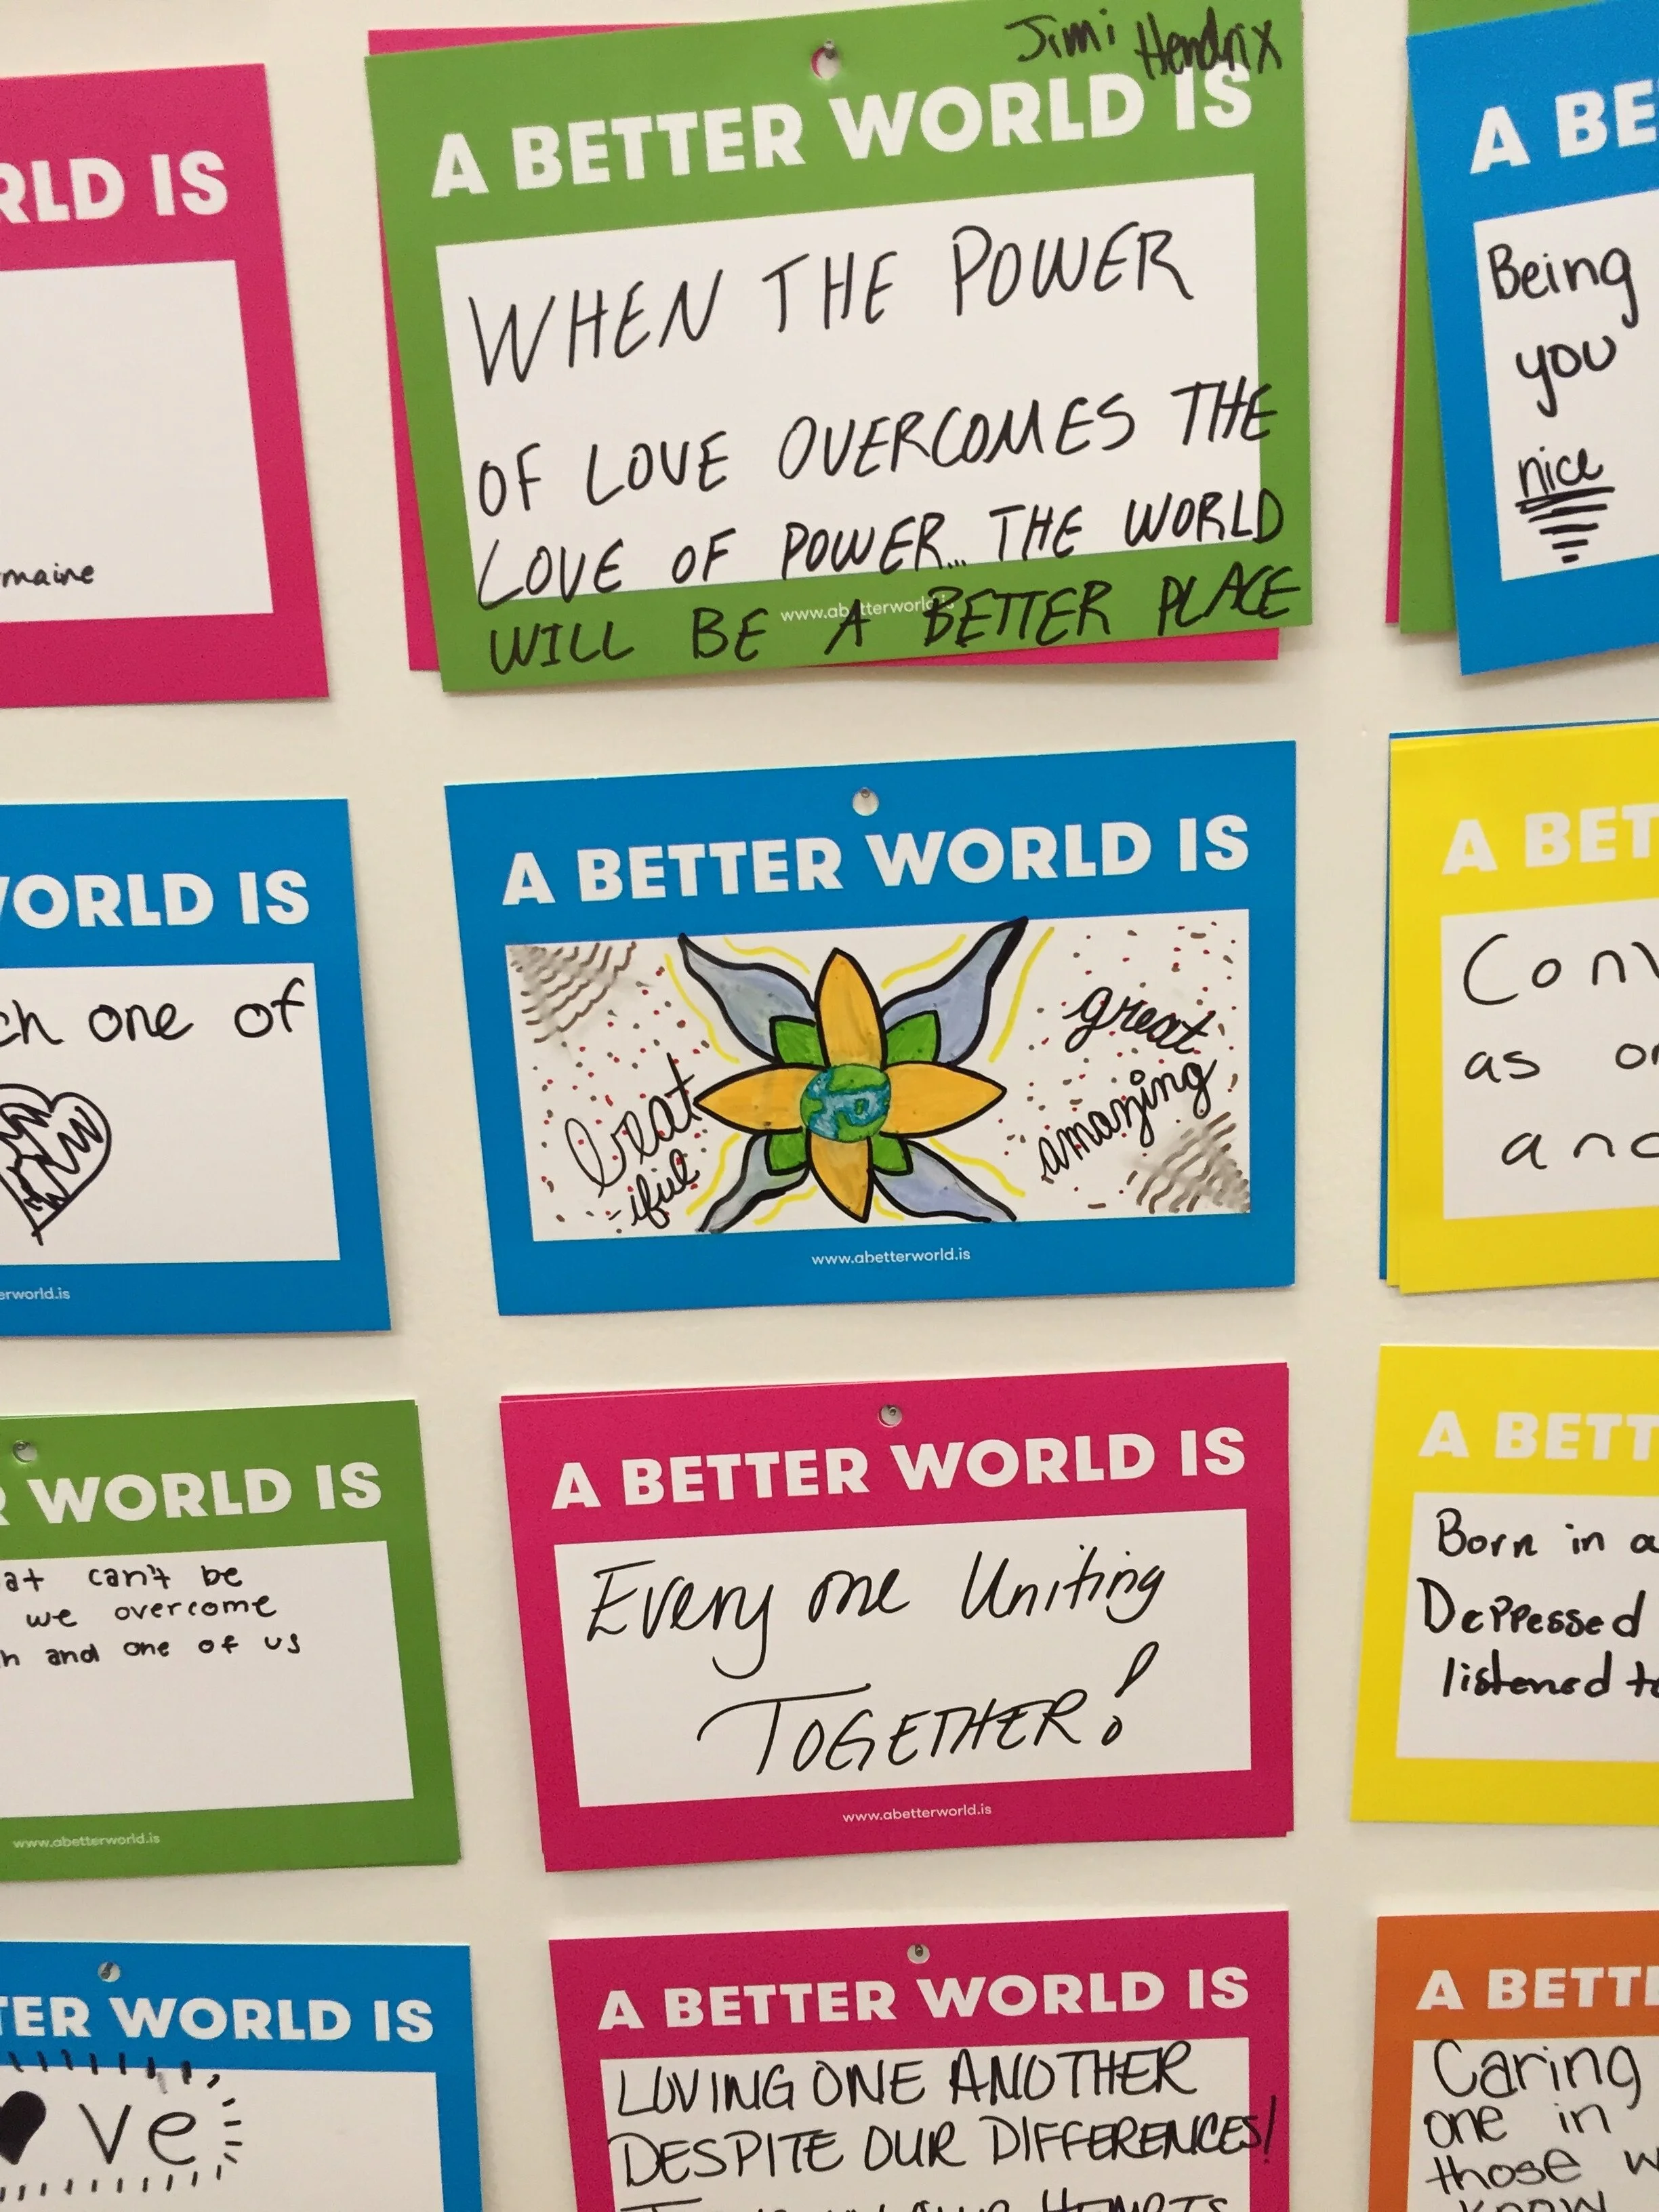 RLD IS
maine
Jimi Hendrix
A BETTER WORLD IS
WHEN THE POWER
OF LOVE OVERCOMES THE
LOVE OF POWER... THE WORLD
WILL BE A BETTER PLACE
www.abetterworld.is
A BE
Being
you
nice
WORLD IS
ch one of
erworld.is
A BETTER WORLD IS
beat
-iful
great
amazing
www.abetterworld.is
A BET
Conv
as or
and
R WORLD IS
at can't be
we overcome
h and one of us
www.abetterworld.is
A BETTER WORLD IS
Every one Uniting
TOGETHER!
www.abetterworld.is
A BETT
Born in a
Deppessed
listened to
TER WORLD IS
♥ve
A BETTER WORLD IS
LOVING ONE ANOTHER
DESPITE OUR DIFFERENCES!
HEARTS
A BETTE
Caring
one in
those w
know